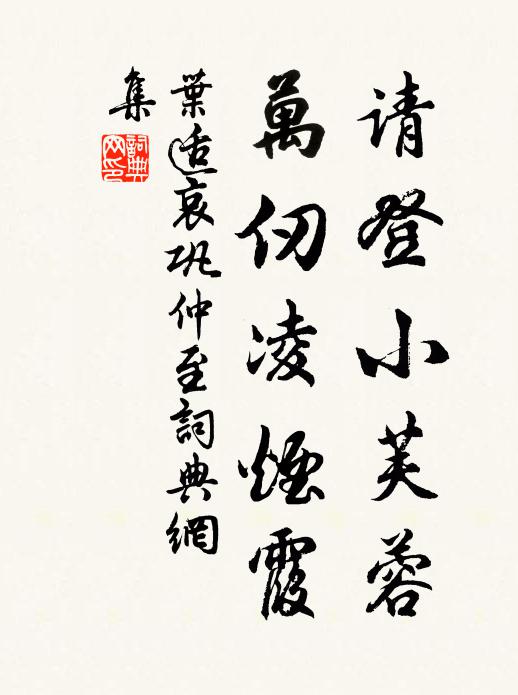 请登小芙蓉
萬仞凌煙霞
葉适哀巩仲至詞典網
集
詞典
网印